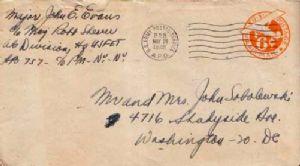 Major John E. Evans
c/o Maj Robt
Division, Hq USFET
APO 757 - c/o PM - NY - NY
U.S. ARMY POSTAL SERVICE
A.P.O.
6¢
Mr and Mrs. John Sobolewski
4716 Shadyside Ave.
Washington - 20 - DC